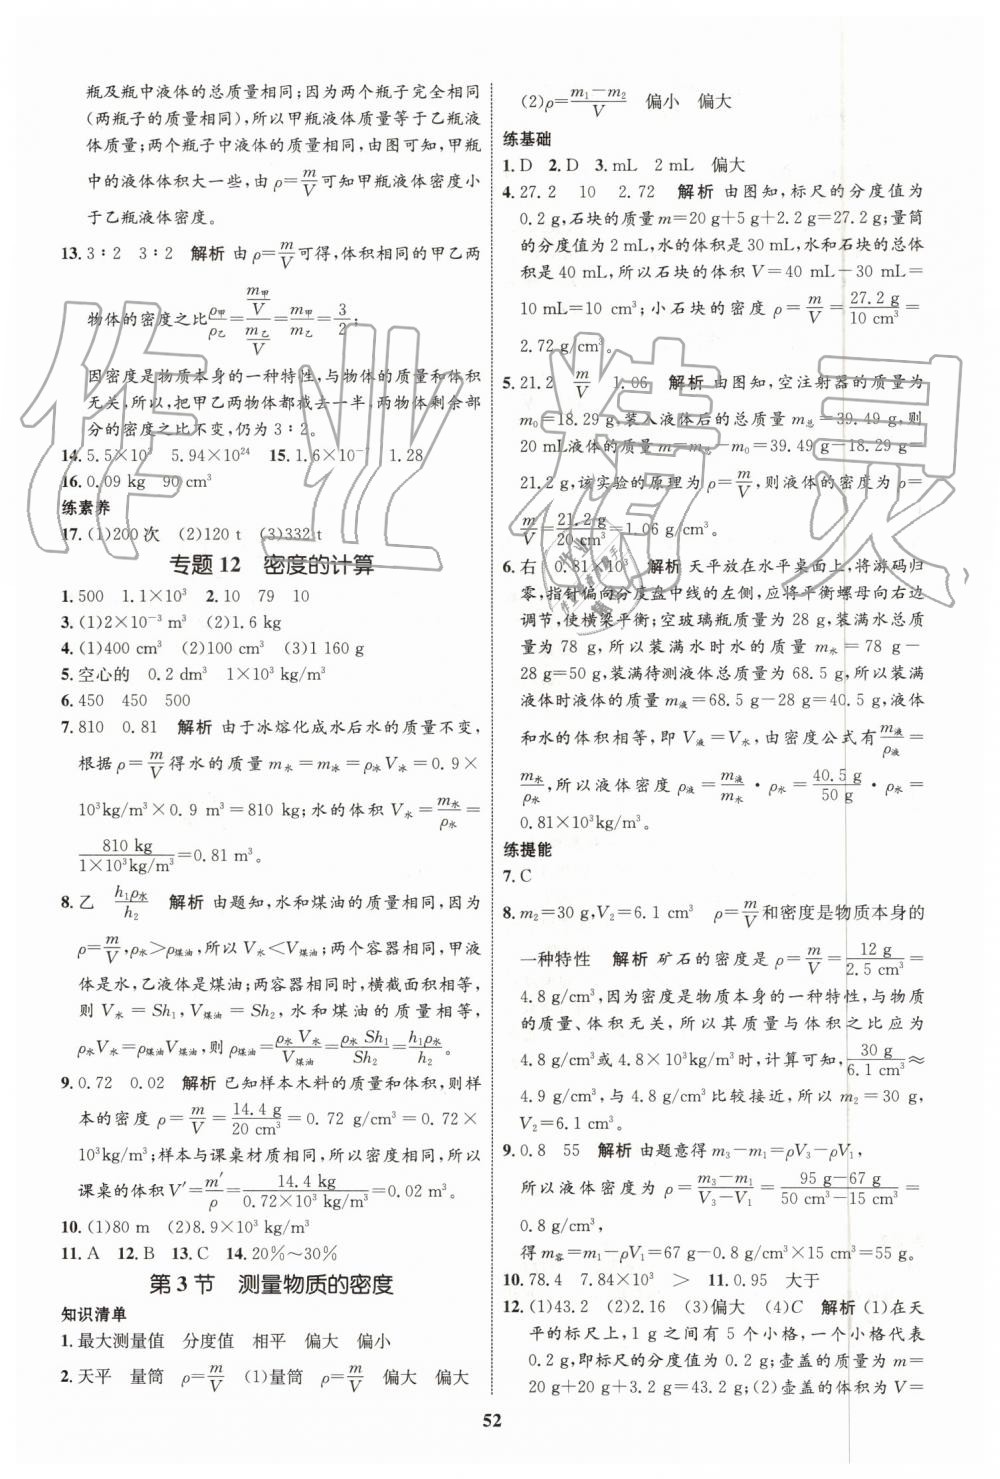 瓶及瓶中液体的总质量相同;因为两个瓶子完全相同
(两瓶子的质量相同),所以甲瓶液体质量等于乙瓶液
体质量;两个瓶子中液体的体积不同,由图可知,甲瓶
中的液体体积大一些,由 ρ=m/V 可知甲瓶液体密度小
于乙瓶液体密度。
13. 3∶2 3∶2 解析 由 ρ=m/V 可得,体积相同的甲乙两
物体的密度之比 ρ甲/ρ乙=(m甲/V)/(m乙/V)=m甲/m乙=3/2;
因密度是物质本身的一种特性,与物体的质量和体积
无关,所以,把甲乙两物体都截去一半,两物体剩余部
分的密度之比不变,仍为 3∶2。
14. 5.5×10³ 5.94×10²⁴ 15. 1.6×10⁻⁷ 1.28
16. 0.09 kg 90 cm³
练素养
17. (1)200 次 (2)120 t (3)332 t
专题 12 密度的计算
1. 500 1.1×10³ 2. 10 79 10
3. (1)2×10⁻³ m³ (2)1.6 kg
4. (1)400 cm³ (2)100 cm³ (3)1 160 g
5. 空心的 0.2 dm³ 1×10³ kg/m³
6. 450 450 500
7. 810 0.81 解析 由于冰熔化成水后水的质量不变,
根据 ρ=m/V 得水的质量 m水=m冰=ρ冰V冰=0.9×
10³kg/m³×0.9 m³=810 kg;水的体积 V水=m水/ρ水=
810 kg/1×10³kg/m³=0.81 m³。
8. 乙 h₁ρ水/h₂ 解析 由题知,水和煤油的质量相同,因为
ρ=m/V,ρ水>ρ煤油,所以 V水<V煤油;两个容器相同,甲液
体是水,乙液体是煤油;两容器相同时,横截面积相等,
则 V水=Sh₁,V煤油=Sh₂,水和煤油的质量相等,
ρ水V水=ρ煤油V煤油,则 ρ煤油=ρ水V水/V煤油=ρ水Sh₁/Sh₂=h₁ρ水/h₂。
9. 0.72 0.02 解析 已知样本木料的质量和体积,则样
本的密度 ρ=m/V=14.4 g/20 cm³=0.72 g/cm³=0.72×
10³kg/m³;样本与课桌材质相同,所以密度相同,所以
课桌的体积 V′=m′/ρ=14.4 kg/0.72×10³ kg/m³=0.02 m³。
10. (1)80 m (2)8.9×10³ kg/m³
11. A 12. B 13. C 14. 20%～30%
第 3 节 测量物质的密度
知识清单
1. 最大测量值 分度值 相平 偏大 偏小
2. 天平 量筒 ρ=m/V (1)量筒 ρ=m/V 偏大 偏大
(2)ρ=(m₁-m₂)/V 偏小 偏大
练基础
1. D 2. D 3. mL 2 mL 偏大
4. 27.2 10 2.72 解析 由图知,标尺的分度值为
0.2 g,石块的质量 m=20 g+5 g+2.2 g=27.2 g;量筒
的分度值为 2 mL,水的体积是 30 mL,水和石块的总体
积是 40 mL,所以石块的体积 V=40 mL-30 mL=
10 mL=10 cm³;小石块的密度 ρ=m/V=27.2 g/10 cm³=
2.72 g/cm³。
5. 21.2 m/V 1.06 解析 由图知,空注射器的质量为
m₀=18.29 g,装入液体后的总质量 m总=39.49 g,则
20 mL液体的质量 m=m总-m₀=39.49 g-18.29 g=
21.2 g,该实验的原理为 ρ=m/V,则液体的密度为 ρ=
m/V=21.2 g/20 cm³=1.06 g/cm³。
6. 右 0.81×10³ 解析 天平放在水平桌面上,将游码归
零,指针偏向分度盘中线的左侧,应将平衡螺母向右边
调节,使横梁平衡;空玻璃瓶质量为 28 g,装满水总质
量为 78 g,所以装满水时水的质量 m水=78 g-
28 g=50 g,装满待测液体总质量为 68.5 g,所以装满
液体时液体的质量 m液=68.5 g-28 g=40.5 g,液体
和水的体积相等,即 V液=V水,由密度公式有 m液/ρ液=
m水/ρ水,所以液体密度 ρ液=m液/m水·ρ水=40.5 g/50 g·ρ水=
0.81×10³kg/m³。
练提能
7. C
8. m₂=30 g,V₂=6.1 cm³ ρ=m/V 和密度是物质本身的
一种特性 解析 矿石的密度是 ρ=m/V=12 g/2.5 cm³=
4.8 g/cm³,因为密度是物质本身的一种特性,与物质
的质量、体积无关,所以其质量与体积之比应为
4.8 g/cm³或 4.8×10³ kg/m³时,计算可知,30 g/6.1 cm³≈
4.9 g/cm³,与 4.8 g/cm³比较接近,所以 m₂=30 g,
V₂=6.1 cm³。
9. 0.8 55 解析 由题意得 m₃-m₁=ρV₃-ρV₁,
所以液体密度为 ρ=(m₃-m₁)/(V₃-V₁)=(95 g-67 g)/(50 cm³-15 cm³)=
0.8 g/cm³,
得 m容=m₁-ρV₁=67 g-0.8 g/cm³×15 cm³=55 g。
10. 78.4 7.84×10³ > 11. 0.95 大于
12. (1)43.2 (2)2.16 (3)偏大 (4)C 解析 (1)在天
平的标尺上,1 g 之间有 5 个小格,一个小格代表
0.2 g,即标尺的分度值为 0.2 g;壶盖的质量为 m=
20 g+20 g+3.2 g=43.2 g;(2)壶盖的体积为 V=
52
作业精灵